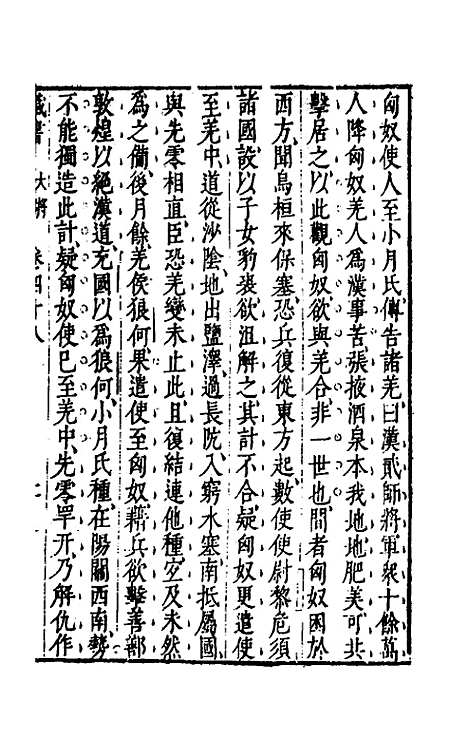 匈奴使人至小月氏傳告諸羌曰漢貳師將軍衆十餘萬
人降匈奴羌人爲漢事苦張掖酒泉本我地地肥美可共
擊居之以此觀匈奴欲與羌合非一世也間者匈奴困於
西方聞烏桓來保塞恐兵復從東方起數使使尉黎危須
諸國設以子女貂裘欲沮解之其計不合疑匈奴更遣使
至羌中道從沙陰地出鹽澤過長阬入窮水塞南抵屬國
與先零相直臣恐羌變未止此且復結連他種宜及未然
爲之備後月餘羌侯狼何果遣使至匈奴藉兵欲擊善鄯
敦煌以絕漢道充國以爲狼何小月氏種在陽關西南勢
不能獨造此計疑匈奴使已至羌中先零罕开乃解仇作
藏書 卷四十八